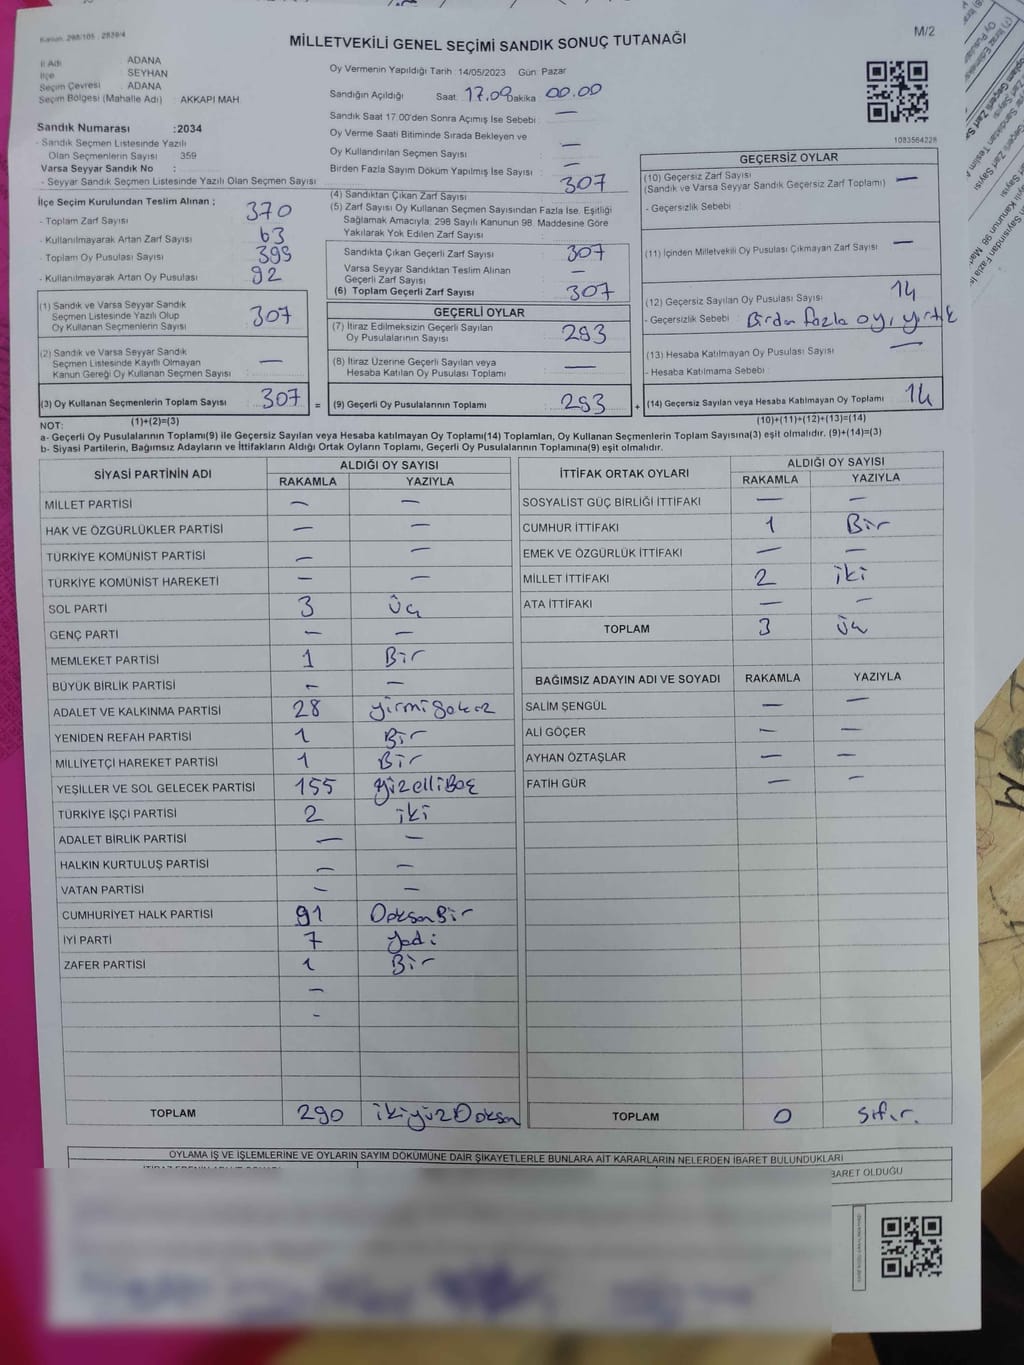 Kanun. 298/105 : 2839/4
MİLLETVEKİLİ GENEL SEÇİMİ SANDIK SONUÇ TUTANAĞI
M/2
İl Adı : ADANA
İlçe : SEYHAN
Seçim Çevresi : ADANA
Seçim Bölgesi (Mahalle Adı) : AKKAPI MAH.
Sandık Numarası :2034
- Sandık Seçmen Listesinde Yazılı
Olan Seçmenlerin Sayısı : 359
Varsa Seyyar Sandık No :
- Seyyar Sandık Seçmen Listesinde Yazılı Olan Seçmen Sayısı :
Oy Vermenin Yapıldığı Tarih :14/05/2023 Gün: Pazar
Sandığın Açıldığı Saat: 17.09 Dakika 00.00
Sandık Saat 17.00'den Sonra Açımış İse Sebebi : —
Oy Verme Saati Bitiminde Sırada Bekleyen ve
Oy Kullandırılan Seçmen Sayısı —
Birden Fazla Sayım Döküm Yapılmış İse Sayısı : —
1083564228
İlçe Seçim Kurulundan Teslim Alınan ;
- Toplam Zarf Sayısı : 370
- Kullanılmayarak Artan Zarf Sayısı : 63
- Toplam Oy Pusulası Sayısı : 399
- Kullanılmayarak Artan Oy Pusulası : 92
(1) Sandık ve Varsa Seyyar Sandık
Seçmen Listesinde Yazılı Olup
Oy Kullanan Seçmenlerin Sayısı : 307
(2) Sandık ve Varsa Seyyar Sandık
Seçmen Listesinde Kayıtlı Olmayan
Kanun Gereği Oy Kullanan Seçmen Sayısı : —
(3) Oy Kullanan Seçmenlerin Toplam Sayısı : 307
(1)+(2)=(3)
(4) Sandıktan Çıkan Zarf Sayısı : 307
(5) Zarf Sayısı Oy Kullanan Seçmen Sayısından Fazla İse, Eşitliği
Sağlamak Amacıyla; 298 Sayılı Kanunun 98. Maddesine Göre
Yakılarak Yok Edilen Zarf Sayısı :
Sandıkta Çıkan Geçerli Zarf Sayısı : 307
Varsa Seyyar Sandıktan Teslim Alınan
Geçerli Zarf Sayısı : —
(6) Toplam Geçerli Zarf Sayısı : 307
GEÇERLİ OYLAR
(7) İtiraz Edilmeksizin Geçerli Sayılan
Oy Pusulalarının Sayısı : 293
(8) İtiraz Üzerine Geçerli Sayılan veya
Hesaba Katılan Oy Pusulası Toplamı : —
= (9) Geçerli Oy Pusulalarının Toplamı : 293 +
GEÇERSİZ OYLAR
(10) Geçersiz Zarf Sayısı
(Sandık ve Varsa Seyyar Sandık Geçersiz Zarf Toplamı) : —
- Geçersizlik Sebebi :
(11) İçinden Milletvekili Oy Pusulası Çıkmayan Zarf Sayısı : —
(12) Geçersiz Sayılan Oy Pusulası Sayısı : 14
- Geçersizlik Sebebi : Birden fazla oy, yırtık
(13) Hesaba Katılmayan Oy Pusulası Sayısı : —
- Hesaba Katılmama Sebebi :
(14) Geçersiz Sayılan veya Hesaba Katılmayan Oy Toplamı : 14
(10)+(11)+(12)+(13)=(14)
NOT:
a- Geçerli Oy Pusulalarının Toplamı(9) ile Geçersiz Sayılan veya Hesaba katılmayan Oy Toplamı(14) Toplamları, Oy Kullanan Seçmenlerin Toplam Sayısına(3) eşit olmalıdır. (9)+(14)=(3)
b- Siyasi Partilerin, Bağımsız Adayların ve İttifakların Aldığı Ortak Oyların Toplamı, Geçerli Oy Pusulalarının Toplamına(9) eşit olmalıdır.
SİYASİ PARTİNİN ADI ALDIĞI OY SAYISI
RAKAMLA YAZIYLA
MİLLET PARTİSİ — —
HAK VE ÖZGÜRLÜKLER PARTİSİ — —
TÜRKİYE KOMÜNİST PARTİSİ — —
TÜRKİYE KOMÜNİST HAREKETİ — —
SOL PARTİ 3 üç
GENÇ PARTİ — —
MEMLEKET PARTİSİ 1 Bir
BÜYÜK BİRLİK PARTİSİ — —
ADALET VE KALKINMA PARTİSİ 28 yirmiSekiz
YENİDEN REFAH PARTİSİ 1 Bir
MİLLİYETÇİ HAREKET PARTİSİ 1 Bir
YEŞİLLER VE SOL GELECEK PARTİSİ 155 yüzelliBeş
TÜRKİYE İŞÇİ PARTİSİ 2 iki
ADALET BİRLİK PARTİSİ — —
HALKIN KURTULUŞ PARTİSİ — —
VATAN PARTİSİ — —
CUMHURİYET HALK PARTİSİ 91 DoksanBir
İYİ PARTİ 7 Yedi
ZAFER PARTİSİ 1 Bir
—
-
TOPLAM 290 ikiyüzDoksan
İTTİFAK ORTAK OYLARI ALDIĞI OY SAYISI
RAKAMLA YAZIYLA
SOSYALİST GÜÇ BİRLİĞİ İTTİFAKI — —
CUMHUR İTTİFAKI 1 Bir
EMEK VE ÖZGÜRLÜK İTTİFAKI — —
MİLLET İTTİFAKI 2 iki
ATA İTTİFAKI — —
TOPLAM 3 üç
BAĞIMSIZ ADAYIN ADI VE SOYADI RAKAMLA YAZIYLA
SALİM ŞENGÜL — —
ALİ GÖÇER — —
AYHAN ÖZTAŞLAR — —
FATİH GÜR — —
TOPLAM 0 Sıfır.
OYLAMA İŞ VE İŞLEMLERİNE VE OYLARIN SAYIM DÖKÜMÜNE DAİR ŞİKAYETLERLE BUNLARA AİT KARARLARIN NELERDEN İBARET BULUNDUKLARI
BARET OLDUĞU